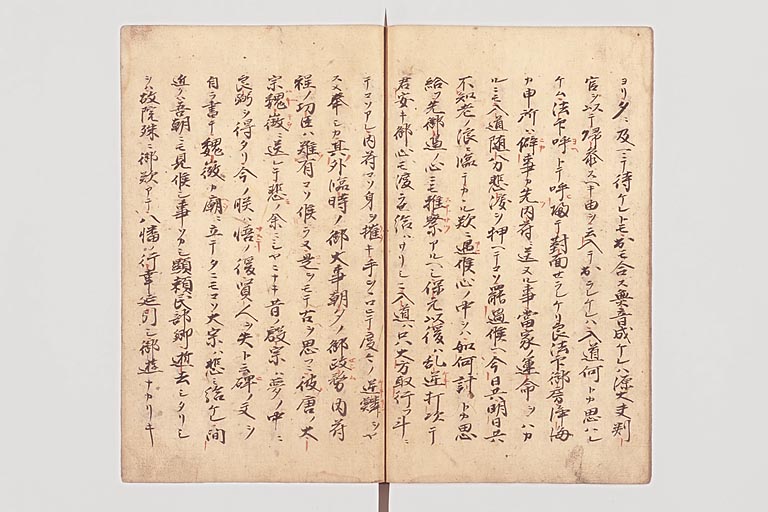 ヨリタニ及ヘニテ待ケレトモ出モ合ス無音成ケレハ源大夫判
官ヲ以テ帰参スヘキ由ヲ云入テ出ラレケレハ入道何トカ思ハレ
ケム法印呼トテ呼返テ対面セラレケリ良法印御房浄海
カ申所ハ僻事カ先内府ニ送ヌル事当家ノ運命ヲハカ
ルニモ入道随分悲涙ヲ押ヘテコソ罷過候ヘ今日共明日共
不知老ノ浪ニ臨テカヽル歎ニ遇候心ノ中ヲハ如何計トカ思
給ヌ先御辺ノ心ニモ推察アルヘシ保元以後ハ乱逆打次テ
君安キ御心モ渡ラセ給ハサリシニ入道ハ只大方取行フ斗ニ
テコソアレ内府コソ身ヲ摧キ手ヲヲロシテ度々ノ逆鱗ヲ
スメ奉シカ其外臨時ノ御大事朝夕ノ御政務内府
程ノ功臣ハ難有コソ候ラヌ是ヲモテ古ヲ思フニ彼唐ノ太
宗魏徴ニ送レテ悲ノ余ニ昔ノ殷宗ハ夢ノ中ニ
良弼ヲ得タリ今ノ朕ハ悟ノ後賢人ヲ失ト云碑ノ文ヲ
自ラ書テ魏徴カ廟ニ立テタニモコソ大宗ハ悲ミ給ケレ間
近ク吾朝ニモ見候シ事ソカシ顕頼民部卿逝去シタリシ
ヲハ故院殊ニ御歎アテ八幡ノ行幸延引シ御遊ナカリキ